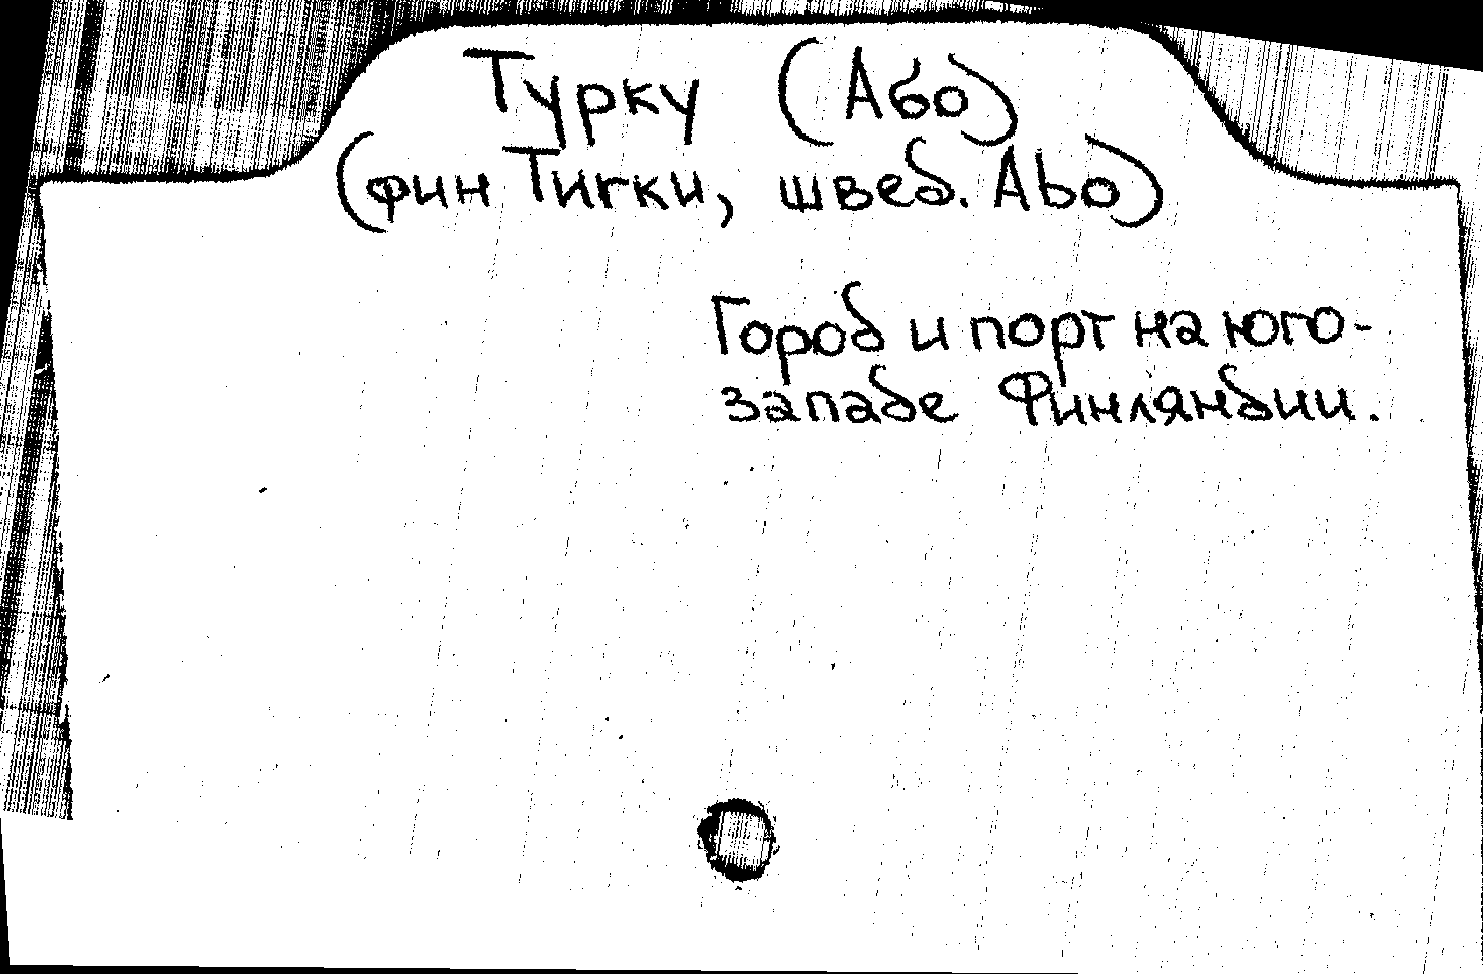 Турку (Або)
(фин Turku, швед. Abo)
Город и порт на юго-
западе Финляндии.